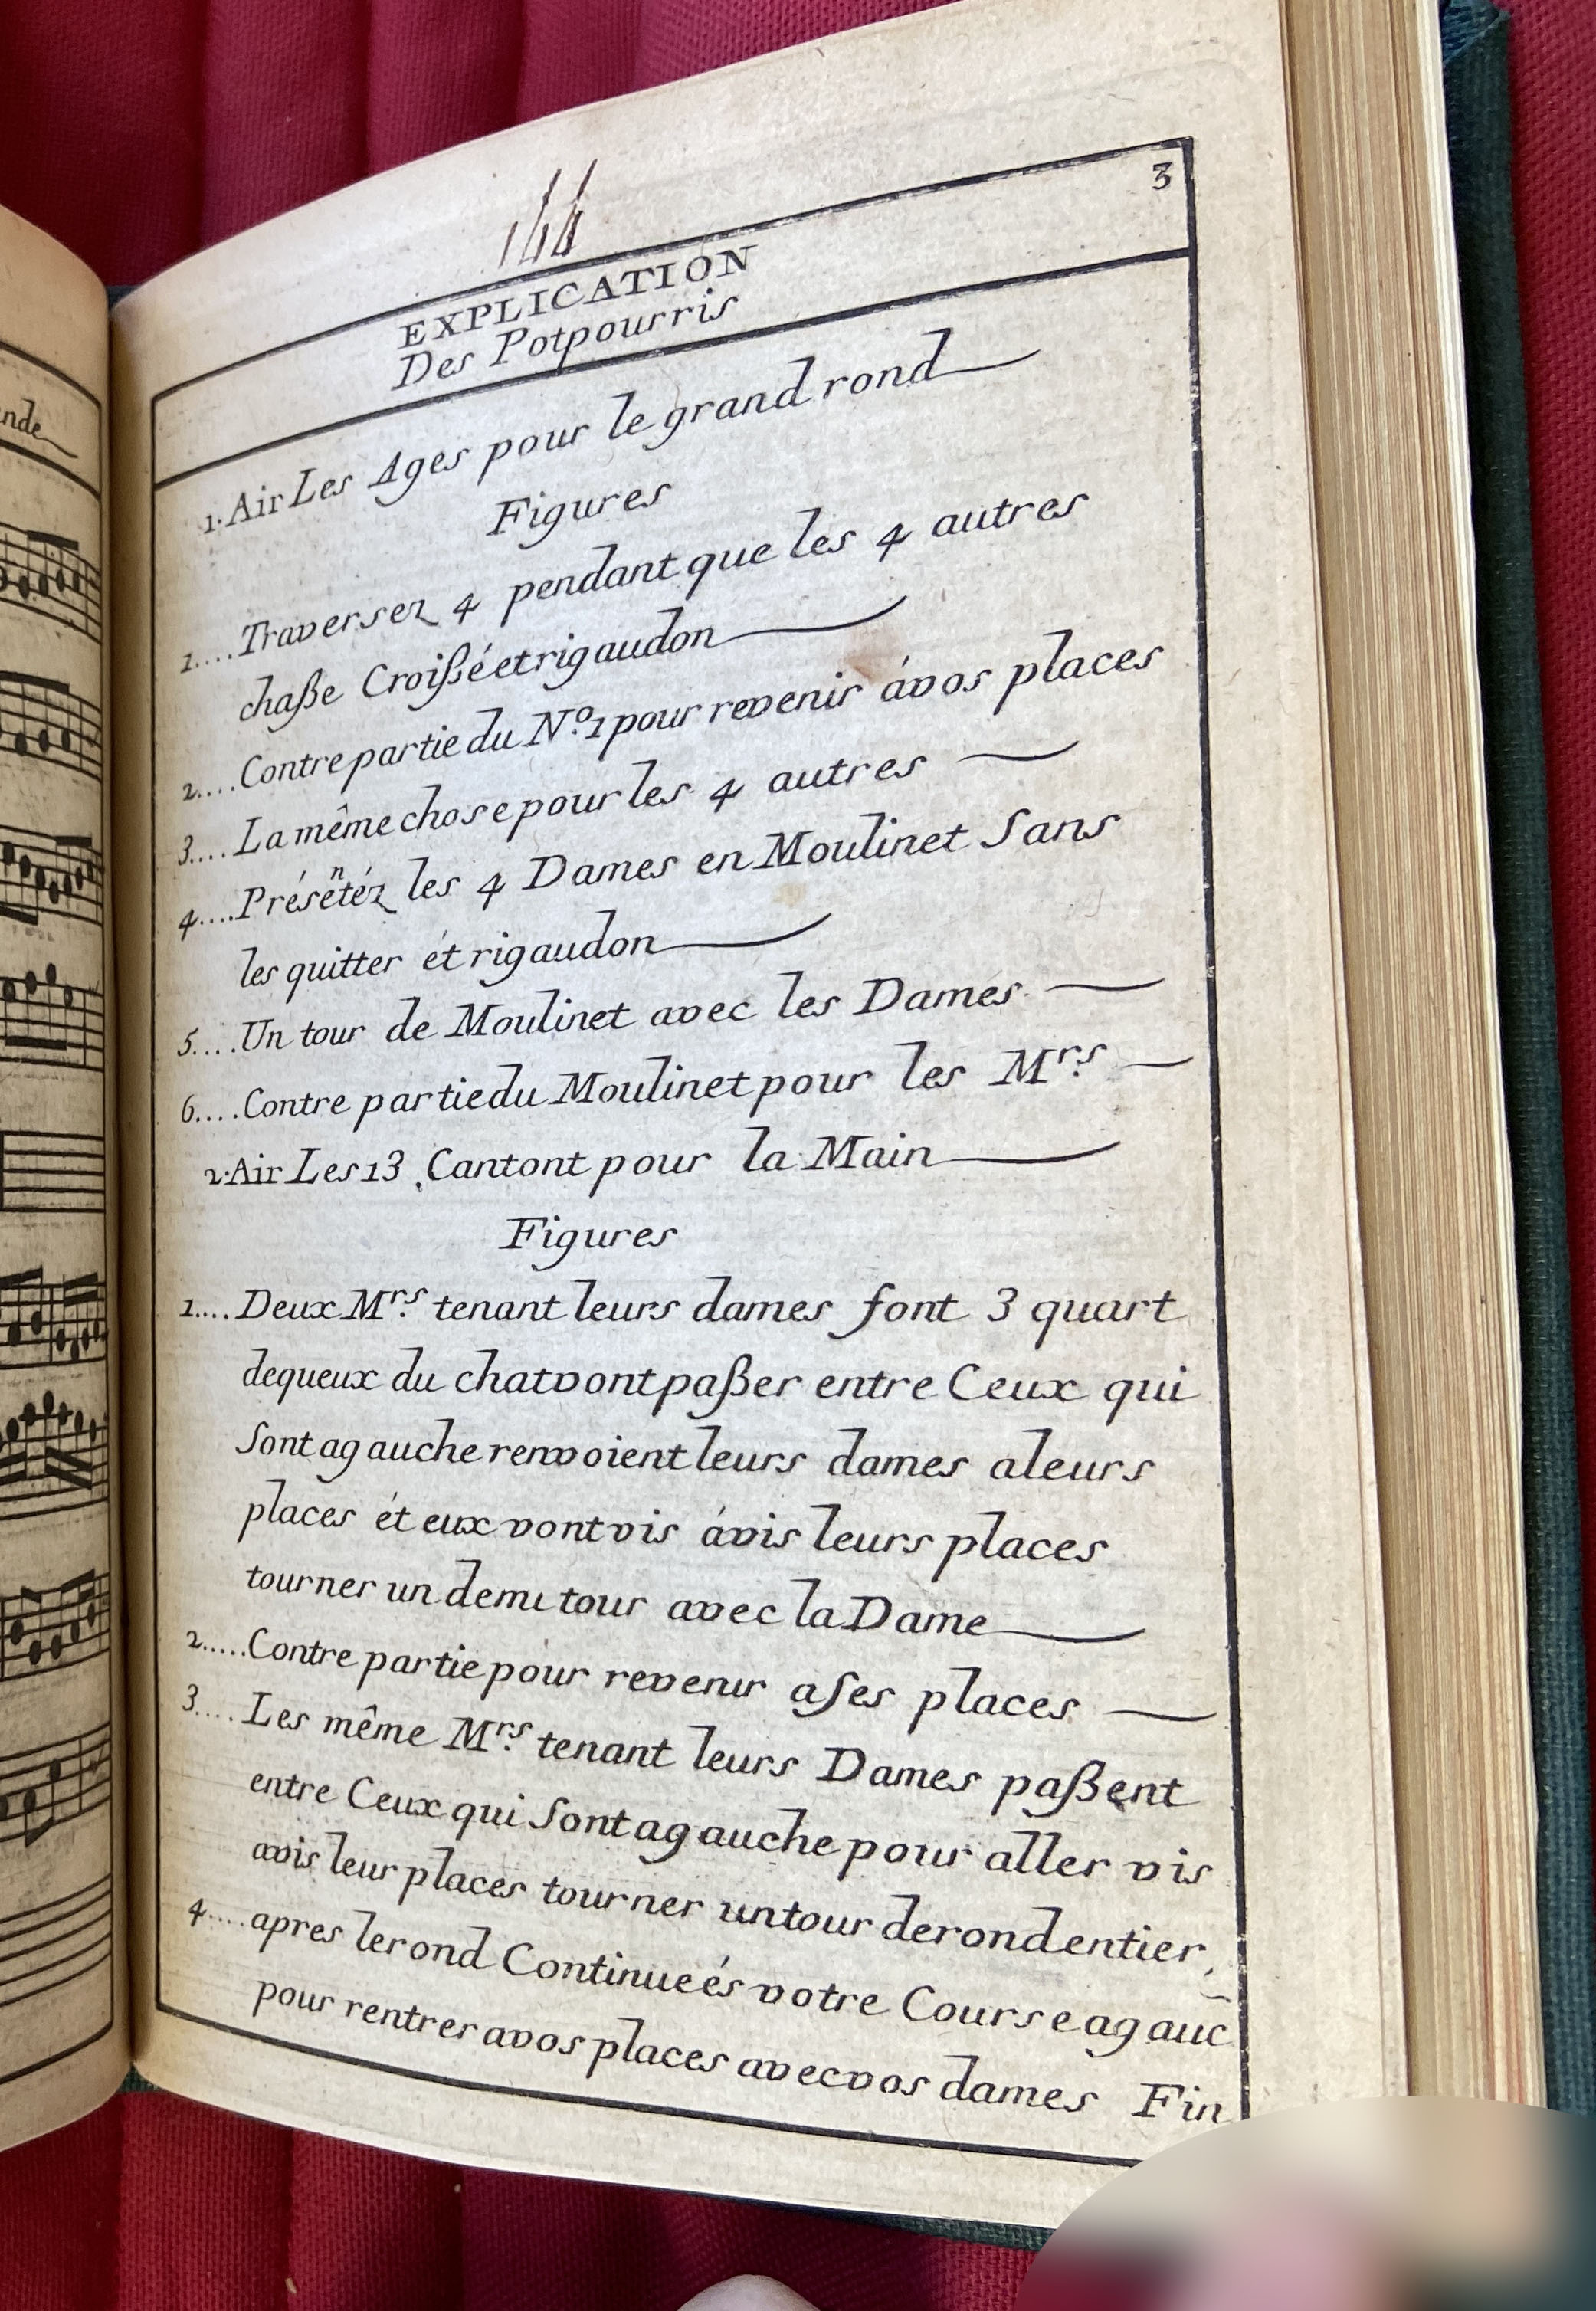 nde
144
3
EXPLICATION
Des Potpourris
1. Air Les Ages pour le grand rond
Figures
1.... Traversez 4 pendant que les 4 autres
chaße Croißé et rigaudon
2.... Contre partie du N.º 1 pour revenir á vos places
3.... La même chose pour les 4 autres
4.... Présẽtéz les 4 Dames en Moulinet Sans
les quitter ét rigaudon
5.... Un tour de Moulinet avec les Dames
6.... Contre partie du Moulinet pour les M.rs
2. Air Les 13, Cantont pour la Main
Figures
1.... Deux M.rs tenant leurs dames font 3 quart
dequeux du chat vont paßer entre Ceux qui
Sont a gauche renvoient leurs dames a leurs
places ét eux vont vis ávis leurs places
tourner un demi tour avec la Dame
2..... Contre partie pour revenir a Ses places
3.... Les même M.rs tenant leurs Dames paßent
entre Ceux qui Sont a gauche pour aller vis
avis leur places tourner un tour de rond entier,
4.... apres le rond Continueés votre Course a gauc
pour rentrer a vos places avec vos dames Fin